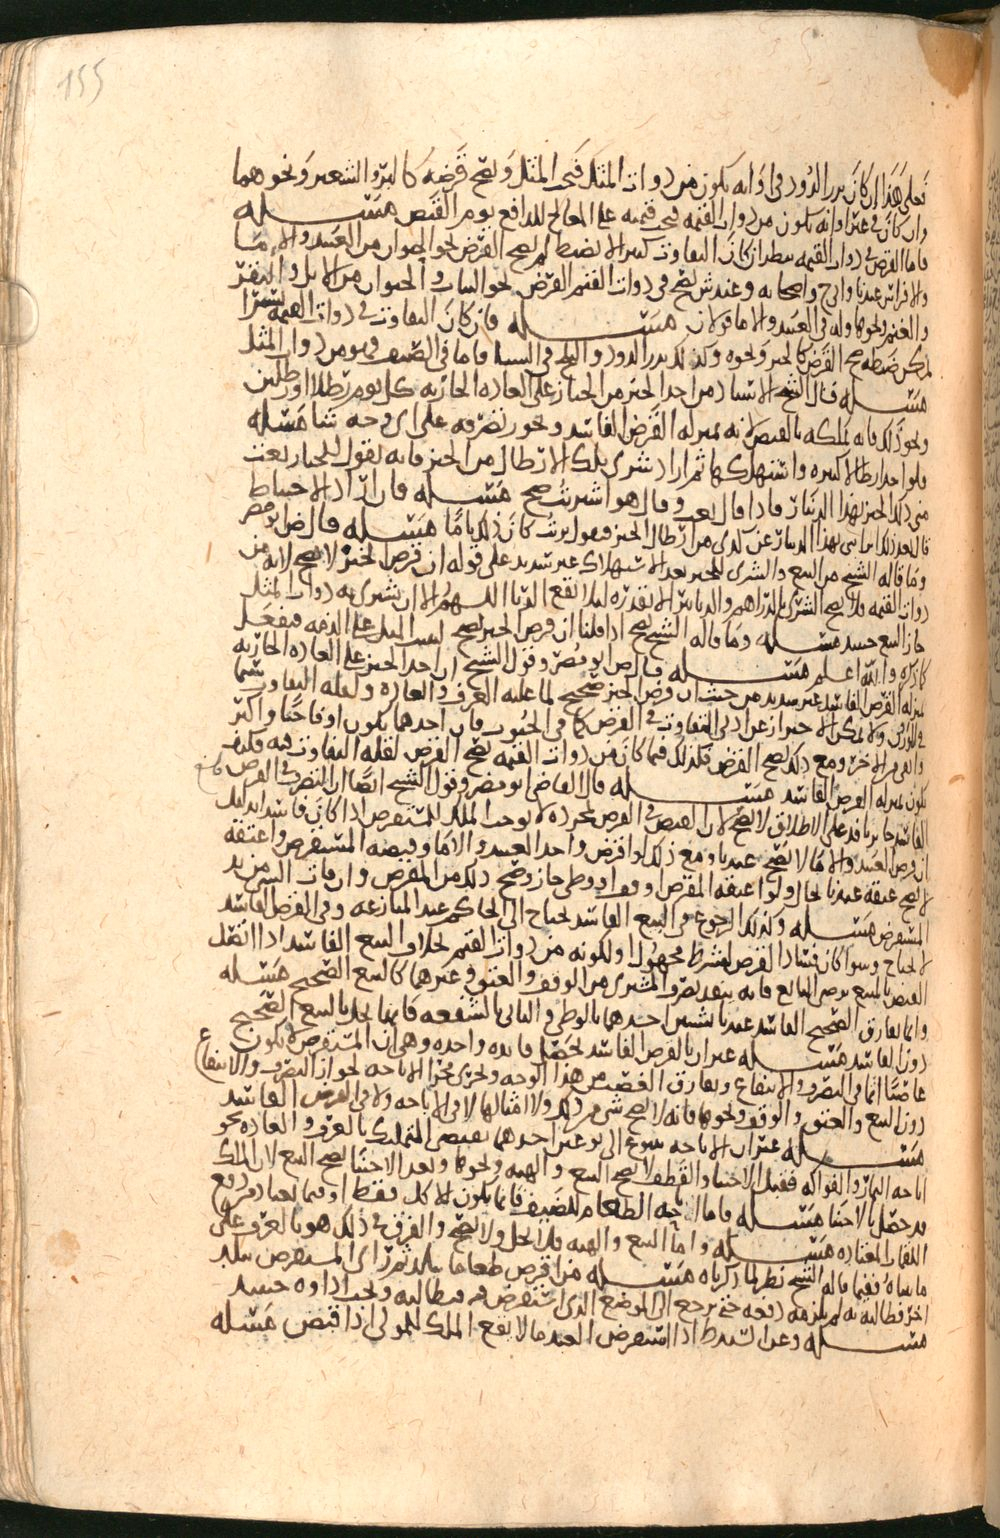 155
فعلى هذا ان كان بزر الدود في اوانه يكون من ذوات المثل فيجب المثل ويصح قرضه كالبر والشعير ونحوهما
وان كان في غير اوانه يكون من ذوات القيمه فيجب قيمته على المعالج للدافع يوم القبض مسئله
فاما القرض في ذوات القيمه ينظر ان كان التفاوت كثيرا لا يضبط لم يصح القرض نحو الحيوان من العبيد والاما
والافراس عندنا وابي ح واصحابه وعند ش يصح في ذوات القيم القرض نحو الثياب والحيوان من الابل والبقر
والغنم ونحوها وله في العبيد والاما قولان مسئله فان كان التفاوت في ذوات القيمه يسيرا
يمكن ضبطه صح القرض كالخبز ونحوه وكذلك بزر الدود والثلج في الشتا فاما في الصيف فهو من ذوات المثل
مسئله قال الشيخ الاستاد من اخذ الخبز من الخباز على العاده الجاريه كل يوم رطلا او رطلين
ونحو ذلك فانه يملكه بالقبض لانه بمنزله القرض الفاسد ويجوز تصرفه على اي وجه شا مسئله
فلو اخذ ارطالا كثيره واستهلكها ثم اراد شرى تلك الارطال من الخبز فانه يقول للخباز بعت
مني ذلك الخبز بهذا الدينار فاذا قال بعت وقال هو اشتريت صح مسئله فان اراد الاحتياط
قال بعد ذلك ابرائتني بهذا الدينار عن كذى من ارطال الخبز فيقول ابريت كان ذلك تاما مسئله قال ض ابو مضر
وما قاله الشيخ من البيع والشرى للخبز بعد الاستهلاك غير سديد على قوله ان قرض الخبز لا يصح لانه من
ذوات القيمه فلا يصح الشرى بالدراهم والدنانير الا بقدره ليلا يقع الربا اللهم الا ان يشترى به ذوات المثل
جاز البيع حينئذ مسئله وما قاله الشيخ يصح اذا قلنا ان قرض الخبز يصح على الذمه فيفعل
كما ذكره والله اعلم مسئله قال ض ابو مضر وقول الشيخ ان اخذ الخبز على العاده الجاريه
بمنزله القرض الفاسد غير سديد من حيث ان قرض الخبز صحيح لما عليه العرف والعاده ولقله التفاوت سيما
في الوزن ولا يمكن الاحتراز عن ادنى التفاوت في القرض كما في الحبوب فان احدهما يكون اوفا حبا واكثر
من الاخر ومع ذلك يصح القرض فكذلك فيما كان من ذوات القيمه يصح القرض لقله التفاوت فيه فكيف
يكون بمنزله القرض الفاسد مسئله قال القاضي ابو مضر وقول الشيخ ايضا ان التصرف في القرض
الفاسد جايز نافذ على الاطلاق لا يصح لان القبض في القرض بمجرده لا يوجب الملك للمستقرض اذا كان فاسدا بدليل
ان قرض العبيد والاما لا يصح عندنا ومع ذلك لو اقرض واحد العبيد والاما وقبضه المستقرض واعتقه
لا يصح عتقه عندنا بحال ولو اعتقه المقرض او وقف او وطى جاز وصح ذلك من المقرض وان مات التي من يد
المستقرض مسئله وكذلك الرجوع في البيع الفاسد يحتاج الى الحاكم عند المنازعه وفي القرض الفاسد
لا يحتاج وسوا كان فساد القرض لشرط مجهول او لكونه من ذوات القيم بخلاف البيع الفاسد اذا اتصل
القبض بالمبيع برضى البايع فانه ينفذ تصرف المشتري من الوقف والعتق وغيرهما كالبيع الصحيح مسئله
وانما يفارق الصحيح الفاسد عندنا بشيين احدهما بالوطي والثاني بالشفعه فانها تجب بالبيع الصحيح
دون الفاسد مسئله غير ان بالقرض الفاسد تحصل فايده واحده وهي ان المستقرض لا يكون
غاصبا اثما في التصرف والانتفاع ويفارق الغصب من هذا الوجه ويجري مجرى الاباحه لجواز التصرف والانتفاع
دون البيع والعتق والوقف ونحوها فانه لا يصح شي من ذلك ولا امثالها لا في الاباحه ولا في القرض الفاسد
مسئله غير ان الاباحه تتنوع الى نوعين احدهما يقتضي التمليك بالعرف والعاده نحو
اباحه الثمار والفواكه فقبل الاجتنا والقطف لا يصح البيع والهبه ونحوها وبعد الاجتنا يصح البيع لان الملك
قد حصل بالاجتنا مسئله فاما اباحه الطعام للضيف فانما يكون للاكل فقط او فيما يعتاد من دفع
اللقمات المعتاده مسئله واما البيع والهبه فلا يحل ولا يصح والفرق في ذلك هو بالعرف على
ما بيناه ففيما قاله الشيخ نظر لما ذكرناه مسئله من اقرض طعاما ببلد ثم راى المستقرض ببلد
اخر فطالبه به لم يلزمه دفعه حتى يرجع الى الموضع الذي استقرض فيه فيطالبه ويجب اداوه حينئذ
مسئله وعن اذا استقرض العبد مالا يقع الملك للمولى اذا قبض مسئله